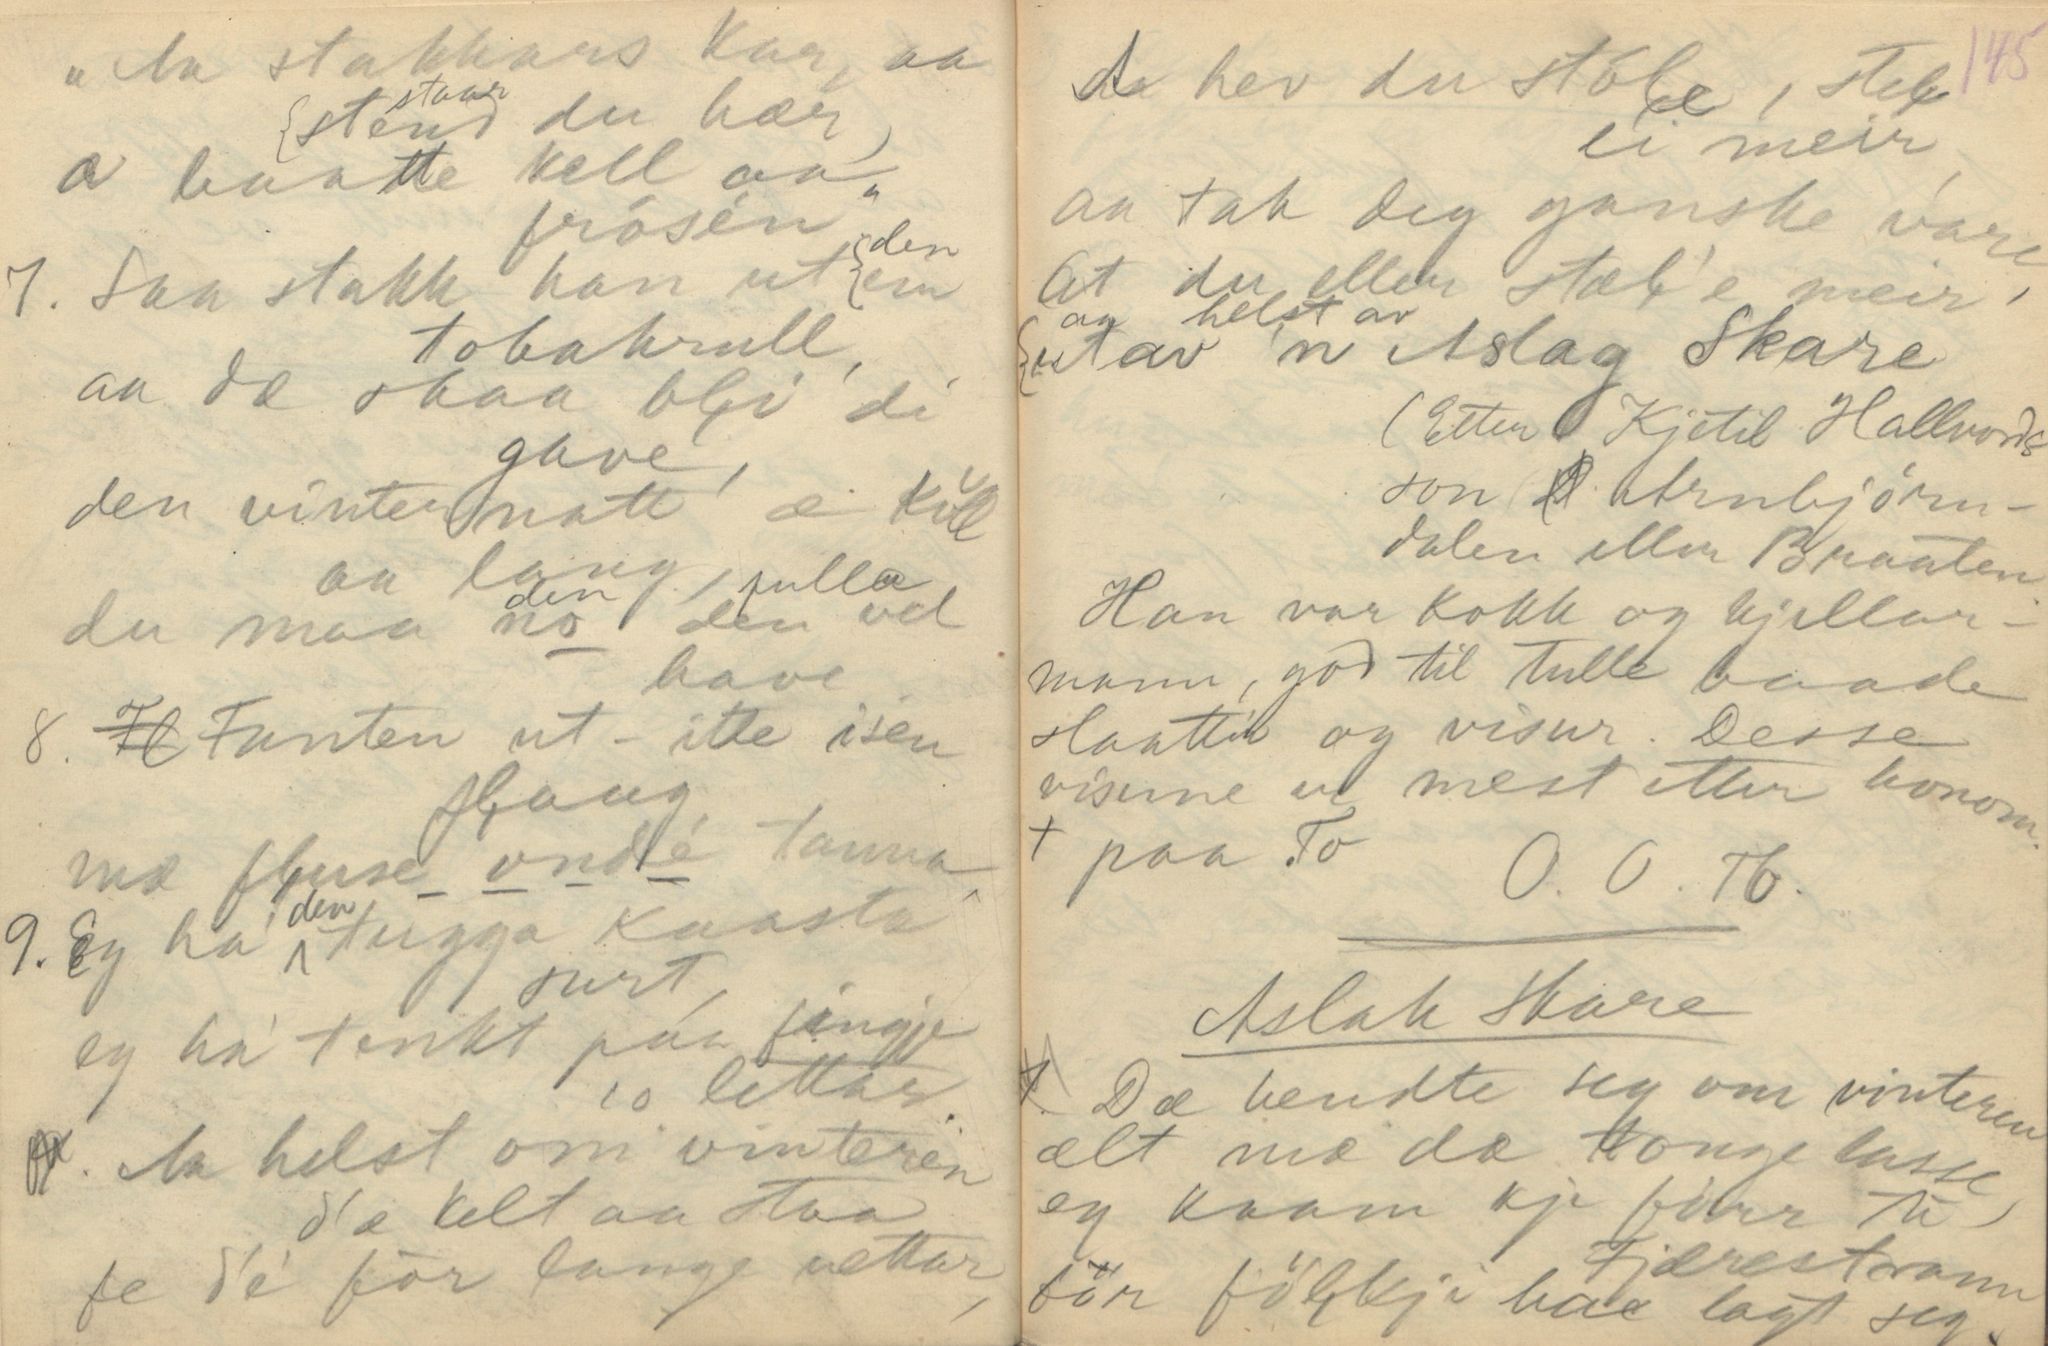 "Aa stakkars Kar, aa
{stend staar du hær,
æ baatte kell aa
frósén"
7. Saa stakk han ut {ein den
tobakrull,
aa dæ skaa bli' di
gave,
den vinternatt æ kall
aa lang,
du maa no den den fulla vel
have
8. Fanten ut-itte isen
sprang
mæ fuse vond'e tanna
9. Eg ha' den tugga kaasta
surt,
eg ha' tenkt paa fingje
10 lettar
Aa helst om vinterén
d'æ kelt aa staa
fe d'é før lange nettar,
145
Aa hev du stóle, stel
ei meir,
aa tak deg ganske vare,
At du eller stæl'e meir,
{ut av 'n Aslag Skare
og helst av
(Etter Kjetil Hallvords
son Arnbjörn-
dalen eller Braaten.
Han var kokk og kjellar-
mann, god til tulle baade
slaattir og visur. Desse
visune er mest etter honom.
+ paa To
O. O. Tb.
Aslak Skare
1. Dæ hendte seg om vinteren
ælt mæ dæ tonge lasse,
eg kaam kje fürr te
Tjærestrann
før fólkji hae lagt seg.